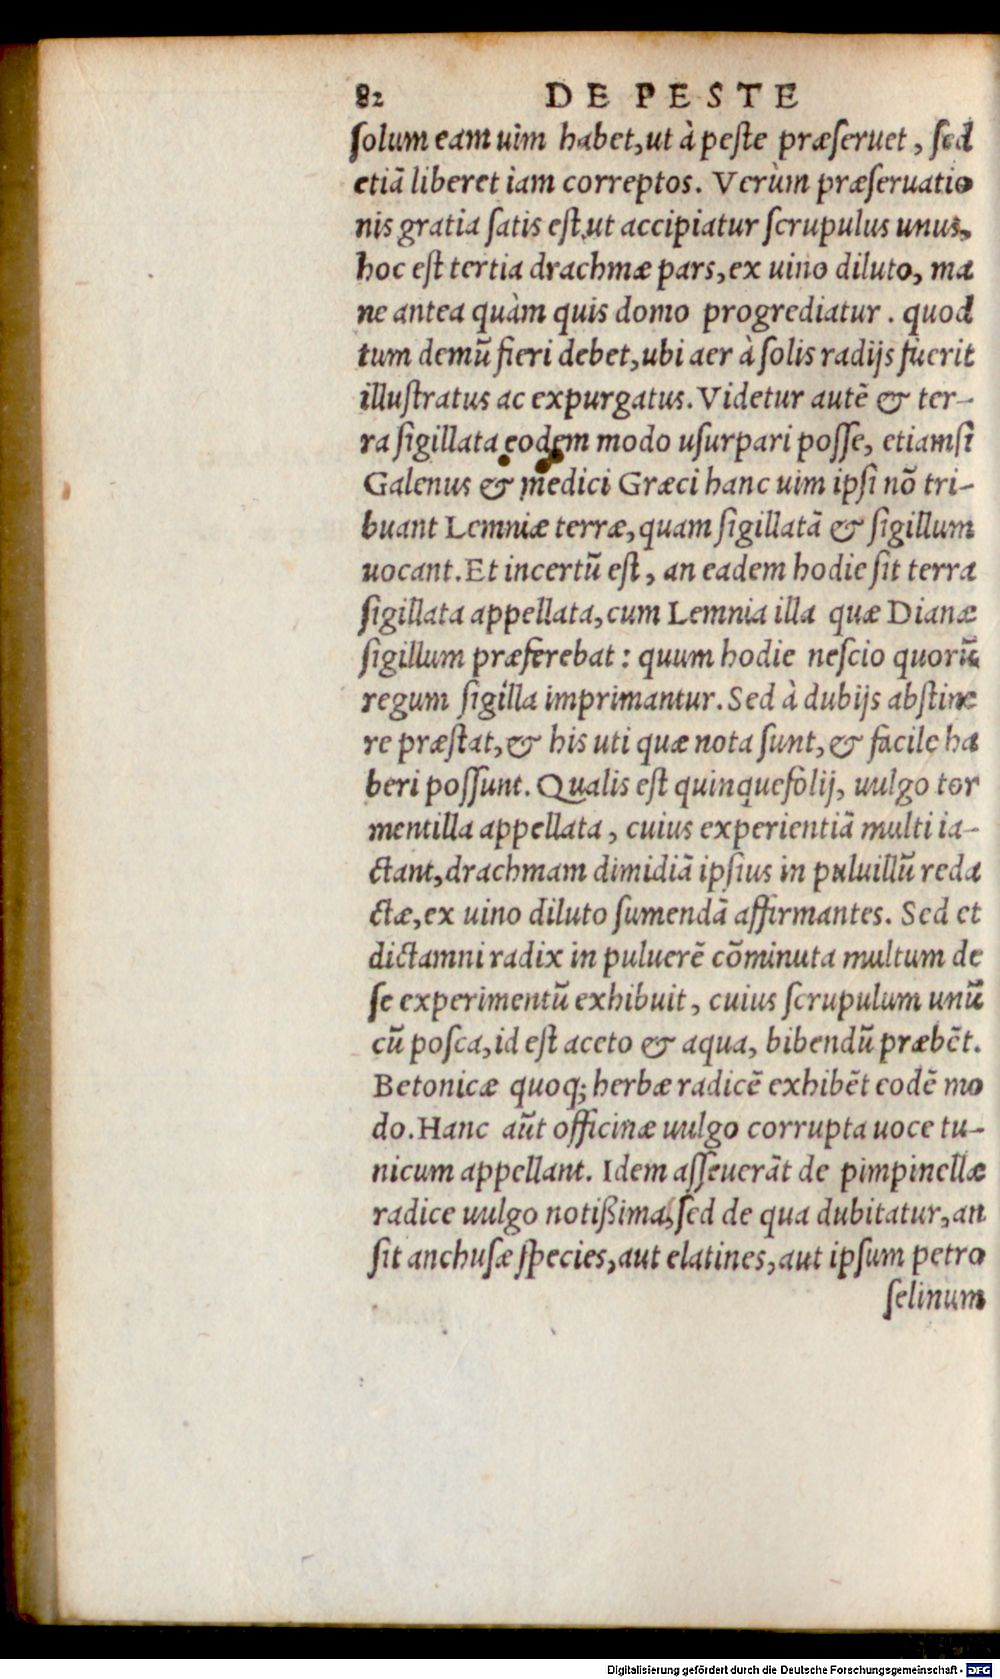 82 DE PESTE
ſolum eam uim habet, ut à peſte præſeruet, ſed
etiã liberet iam correptos. Verùm præſeruatio
nis gratia ſatis eſt ut accipiatur ſcrupulus unus,
hoc eſt tertia drachmæ pars, ex uino diluto, ma
ne antea quàm quis domo progrediatur. quod
tum demũ fieri debet, ubi aer à ſolis radijs fuerit
illuſtratus ac expurgatus. Videtur autẽ & ter-
ra ſigillata eodem modo uſurpari poſſe, etiamſi
Galenus & medici Græci hanc uim ipſi nõ tri-
buant Lemniæ terræ, quam ſigillatã & ſigillum
uocant. Et incertũ eſt, an eadem hodie ſit terra
ſigillata appellata, cum Lemnia illa quæ Dianæ
ſigillum præferebat: quum hodie neſcio quorũ
regum ſigilla imprimantur. Sed à dubijs abſtine
re præſtat, & his uti quæ nota ſunt, & facile ha
beri poſſunt. Qualis eſt quinquefolij, uulgo tor
mentilla appellata, cuius experientiã multi ia-
ctant, drachmam dimidiã ipſius in puluillũ reda
ctæ, ex uino diluto ſumendã affirmantes. Sed et
dictamni radix in puluerẽ cõminuta multum de
ſe experimentũ exhibuit, cuius ſcrupulum unũ
cũ poſca, id eſt aceto & aqua, bibendũ præbẽt.
Betonicæ quoq; herbæ radicẽ exhibẽt eodẽ mo
do. Hanc aũt officinæ uulgo corrupta uoce tu-
nicum appellant. Idem aſſeuerãt de pimpinellæ
radice uulgo notißima, ſed de qua dubitatur, an
ſit anchuſæ ſpecies, aut elatines, aut ipſum petro
ſelinum
Digitalisierung gefördert durch die Deutsche Forschungsgemeinschaft - DFG